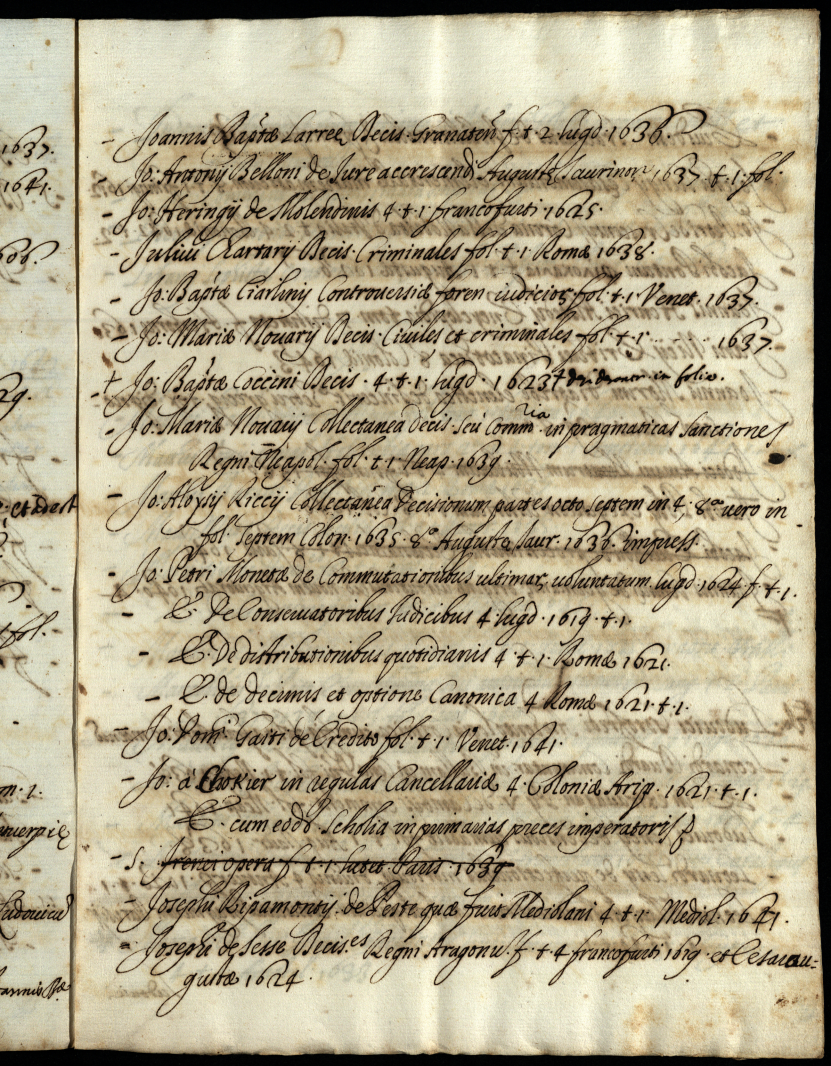 1637.
1641.
- Joannis Bap.tæ Larreę Decis. Granateñ f. t. 2. lugd. 1636.
- Jo: Antonij Belloni de Jure accrescendi Augustę Taurinor. 1637 t. 1. fol.
- Jo: Heringij de Molendinis 4. t. 1. francofurti. 1625.
- Julii Chartarij Decis. Criminales fol. t. 1. Romæ 1638.
- Jo: Bap.tæ Ciarlinij Controuersiæ foren. iudicior. fol. t. 1. Venet. 1637.
- Jo: Mariæ Nouarij Decis. Ciuiles et criminales fol. t. 1. . . . . 1637.
+ Jo: Bap.tæ Coccini Decis. 4. t. 1. lugd. 1623 + in folio.
- Jo: Mariæ Nouarij Collectanea decis. seu Comm.ria in pragmaticas sanctiones
Regni Neapol. fol. t. 1. Neap. 1639.
- Jo: Aloysij Riccij Collectanea Decisionum partes octo septem in 4. 8.a uero in
fol. septem Colon. 1635. 8.a Augustæ Taur. 1636. impress.
- Jo: Petri Monetæ de Commutationibus ultimar. uoluntatum lugd. 1624. f. t. 1.
- E. De Conseruatoribus Judicibus 4. lugd. 1619. t. 1.
- E. De distributionibus quotidianis 4. t. 1. Romæ 1621.
- E. de decimis et optione Canonica 4. Romæ 1621. t. 1.
- Jo: Dom.ci Gaiti de Credito fol. t. 1. Venet. 1641.
- Jo: à Chokier in regulas Cancellariæ 4. Coloniæ Arip. 1621. t. 1.
E. cum eod. Scholia in primarias preces imperatoris
- S. Irenei opera f. t. 1. Paris 1639
- Josephi Ripamontij de Peste quæ fuit Mediolani 4. t. 1. Mediol. 1641.
- Josephi de Sesse Decis.es Regni Aragonu. f. t. 4. francofurti 1619. et Cesarau-
gustæ 1624.